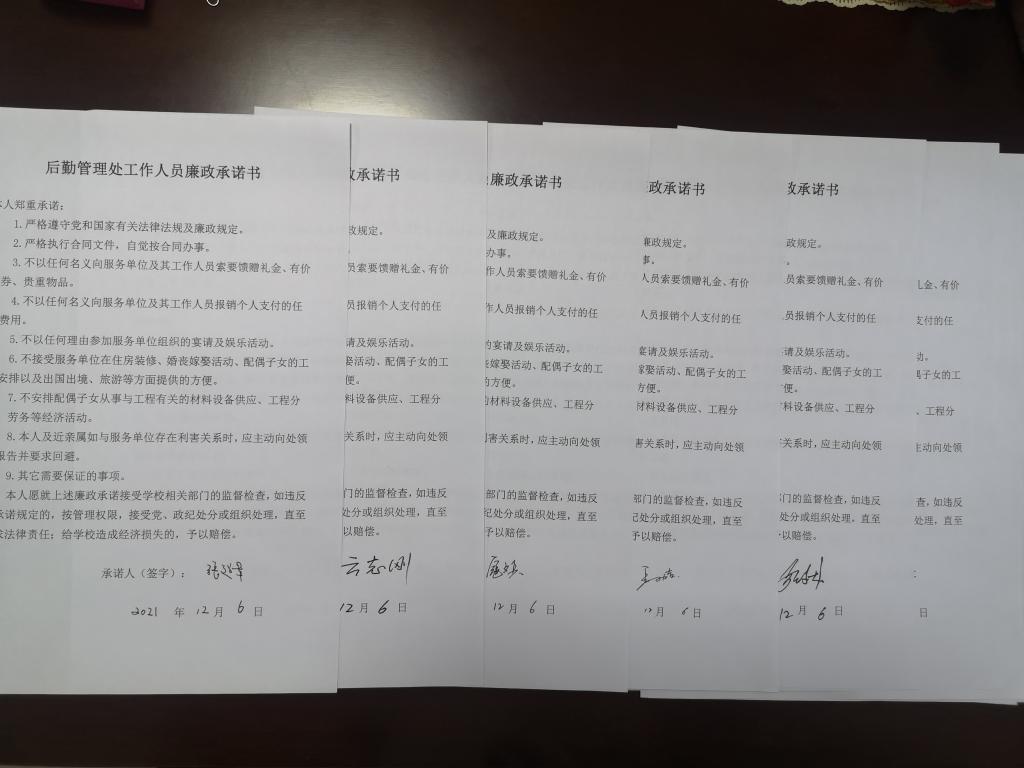 后勤管理处工作人员廉政承诺书
本人郑重承诺：
1.严格遵守党和国家有关法律法规及廉政规定。
2.严格执行合同文件，自觉按合同办事。
3.不以任何名义向服务单位及其工作人员索要馈赠礼金、有价
券、贵重物品。
4.不以任何名义向服务单位及其工作人员报销个人支付的任
费用。
5.不以任何理由参加服务单位组织的宴请及娱乐活动。
6.不接受服务单位在住房装修、婚丧嫁娶活动、配偶子女的工
安排以及出国出境、旅游等方面提供的方便。
7.不安排配偶子女从事与工程有关的材料设备供应、工程分
劳务等经济活动。
8.本人及近亲属如与服务单位存在利害关系时，应主动向处领
报告并要求回避。
9.其它需要保证的事项。
本人愿就上述廉政承诺接受学校相关部门的监督检查，如违反
承诺规定的，按管理权限，接受党、政纪处分或组织处理，直至
法律责任；给学校造成经济损失的，予以赔偿。
承诺人（签字）：
2021 年 12 月 6 日
政承诺书
政规定。
员索要馈赠礼金、有价
员报销个人支付的任
请及娱乐活动。
活动、配偶子女的工
便。
料设备供应、工程分
关系时，应主动向处领
门的监督检查，如违反
处分或组织处理，直至
以赔偿。
云志刚
12 月 6 日
廉政承诺书
及廉政规定。
办事。
作人员索要馈赠礼金、有价
作人员报销个人支付的任
的宴请及娱乐活动。
丧嫁娶活动、配偶子女的工
的方便。
的材料设备供应、工程分
利害关系时，应主动向处领
部门的监督检查，如违反
纪处分或组织处理，直至
予以赔偿。
12 月 6 日
政承诺书
廉政规定。
事。
人员索要馈赠礼金、有价
人员报销个人支付的任
宴请及娱乐活动。
嫁娶活动、配偶子女的工
方便。
材料设备供应、工程分
害关系时，应主动向处领
部门的监督检查，如违反
纪处分或组织处理，直至
予以赔偿。
12 月 6 日
政承诺书
政规定。
员索要馈赠礼金、有价
员报销个人支付的任
请及娱乐活动。
娶活动、配偶子女的工
便。
料设备供应、工程分
关系时，应主动向处领
门的监督检查，如违反
处分或组织处理，直至
以赔偿。
12 月 6 日
礼金、有价
支付的任
动。
偶子女的工
、工程分
主动向处领
查，如违反
处理，直至
：
日